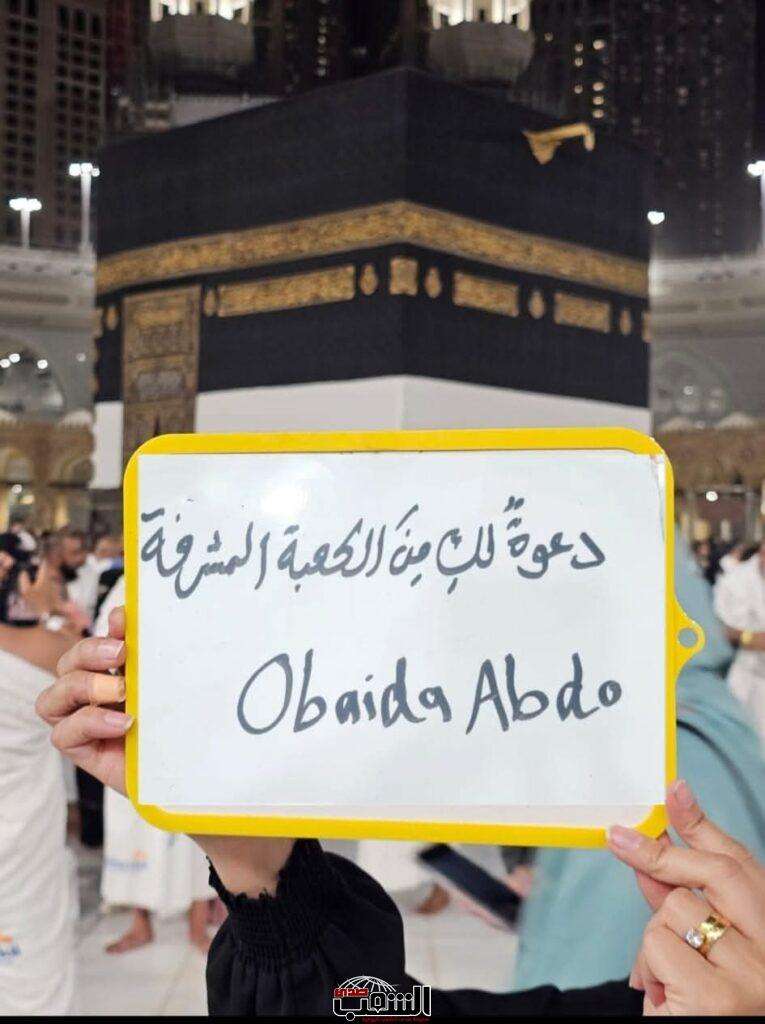 دعوةً لكِ مِنَ الكعبة المشرفة
Obaida Abdo
صدى
الشعب